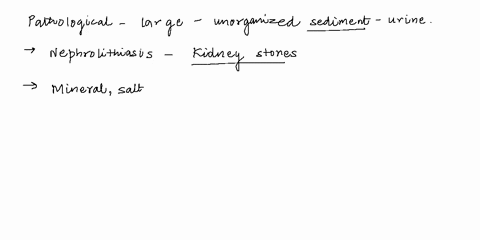 Pathological - large - unorganized sediment - urine.
→ Nephrolithiasis - Kidney stones
→ Mineral, salt